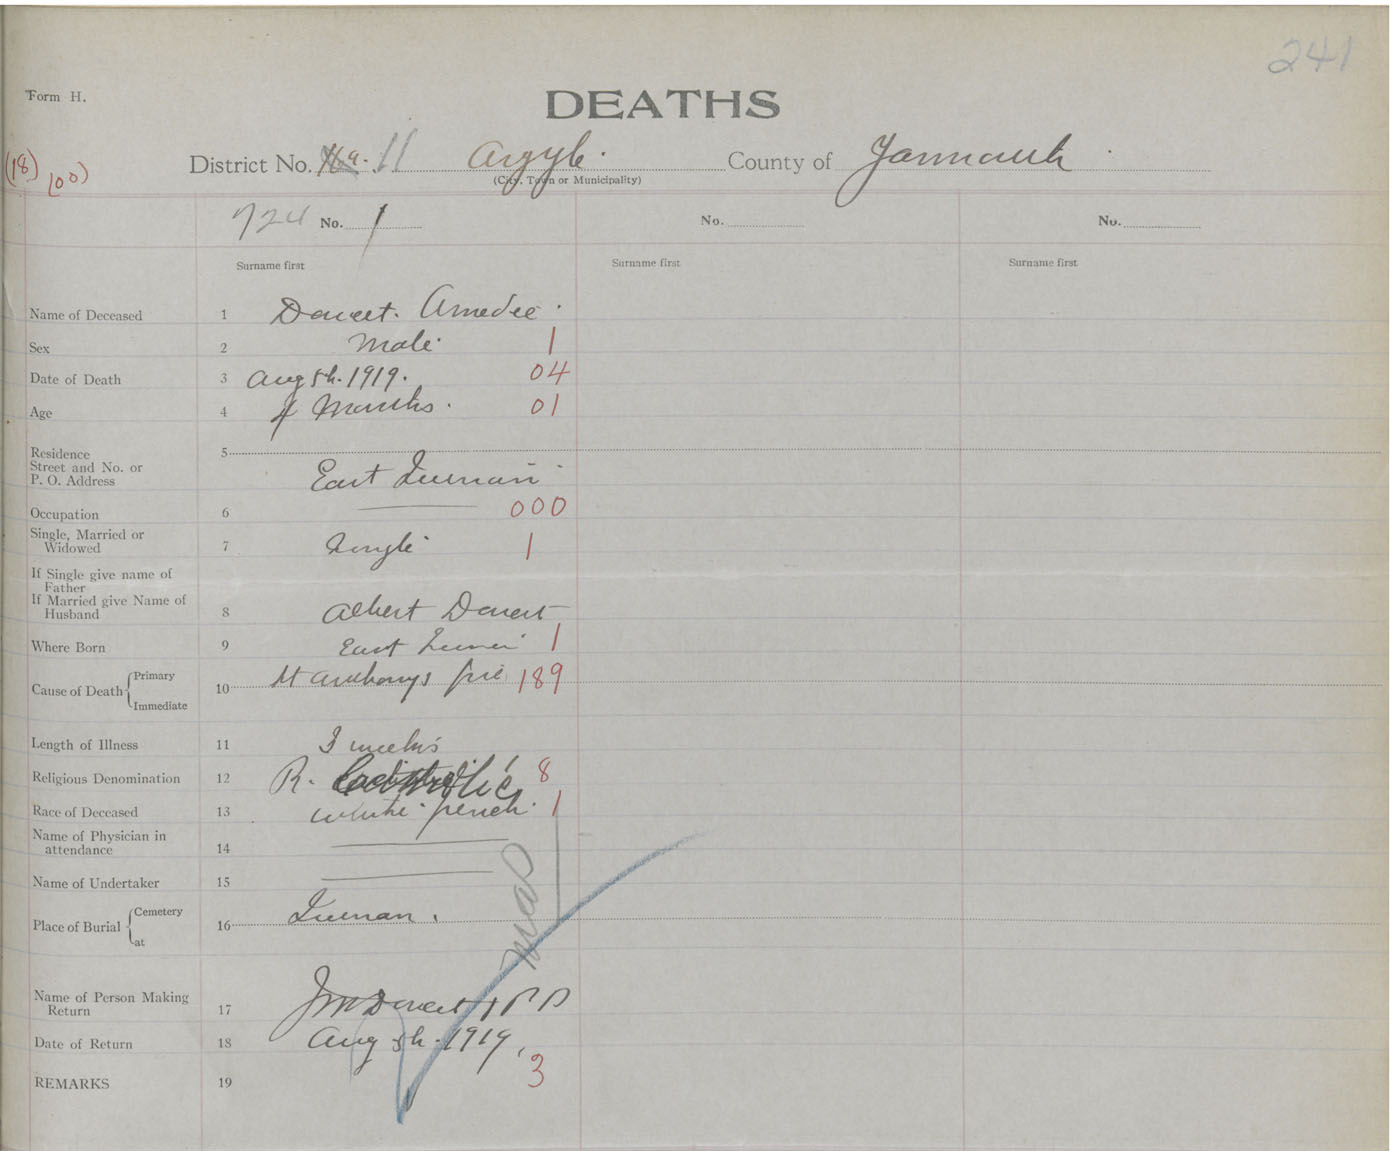 241
Form H.
DEATHS
(18) 00)
District No. 11 Argyle. County of Yarmouth
(City, Town or Municipality)
724 No. 1 No. No.
Surname first Surname first Surname first
Name of Deceased 1 Doucet. Amedee
Sex 2 Male 1
Date of Death 3 Aug 5th. 1919. 04
Age 4 4 Months. 01
Residence 5
Street and No. or
P. O. Address East
Occupation 6 000
Single, Married or
Widowed 7 Single 1
If Single give name of
Father
If Married give Name of
Husband 8 Albert Doucet
Where Born 9 East 1
Cause of Death Primary 10 St Anthonys fire 189
Immediate
Length of Illness 11 3 weeks
Religious Denomination 12 R. Catholic 8
Race of Deceased 13 white french. 1
Name of Physician in
attendance 14
Name of Undertaker 15
Place of Burial Cemetery 16
at
Name of Person Making
Return 17 Doucet
Date of Return 18 Aug 5th. 1919,
REMARKS 19 3